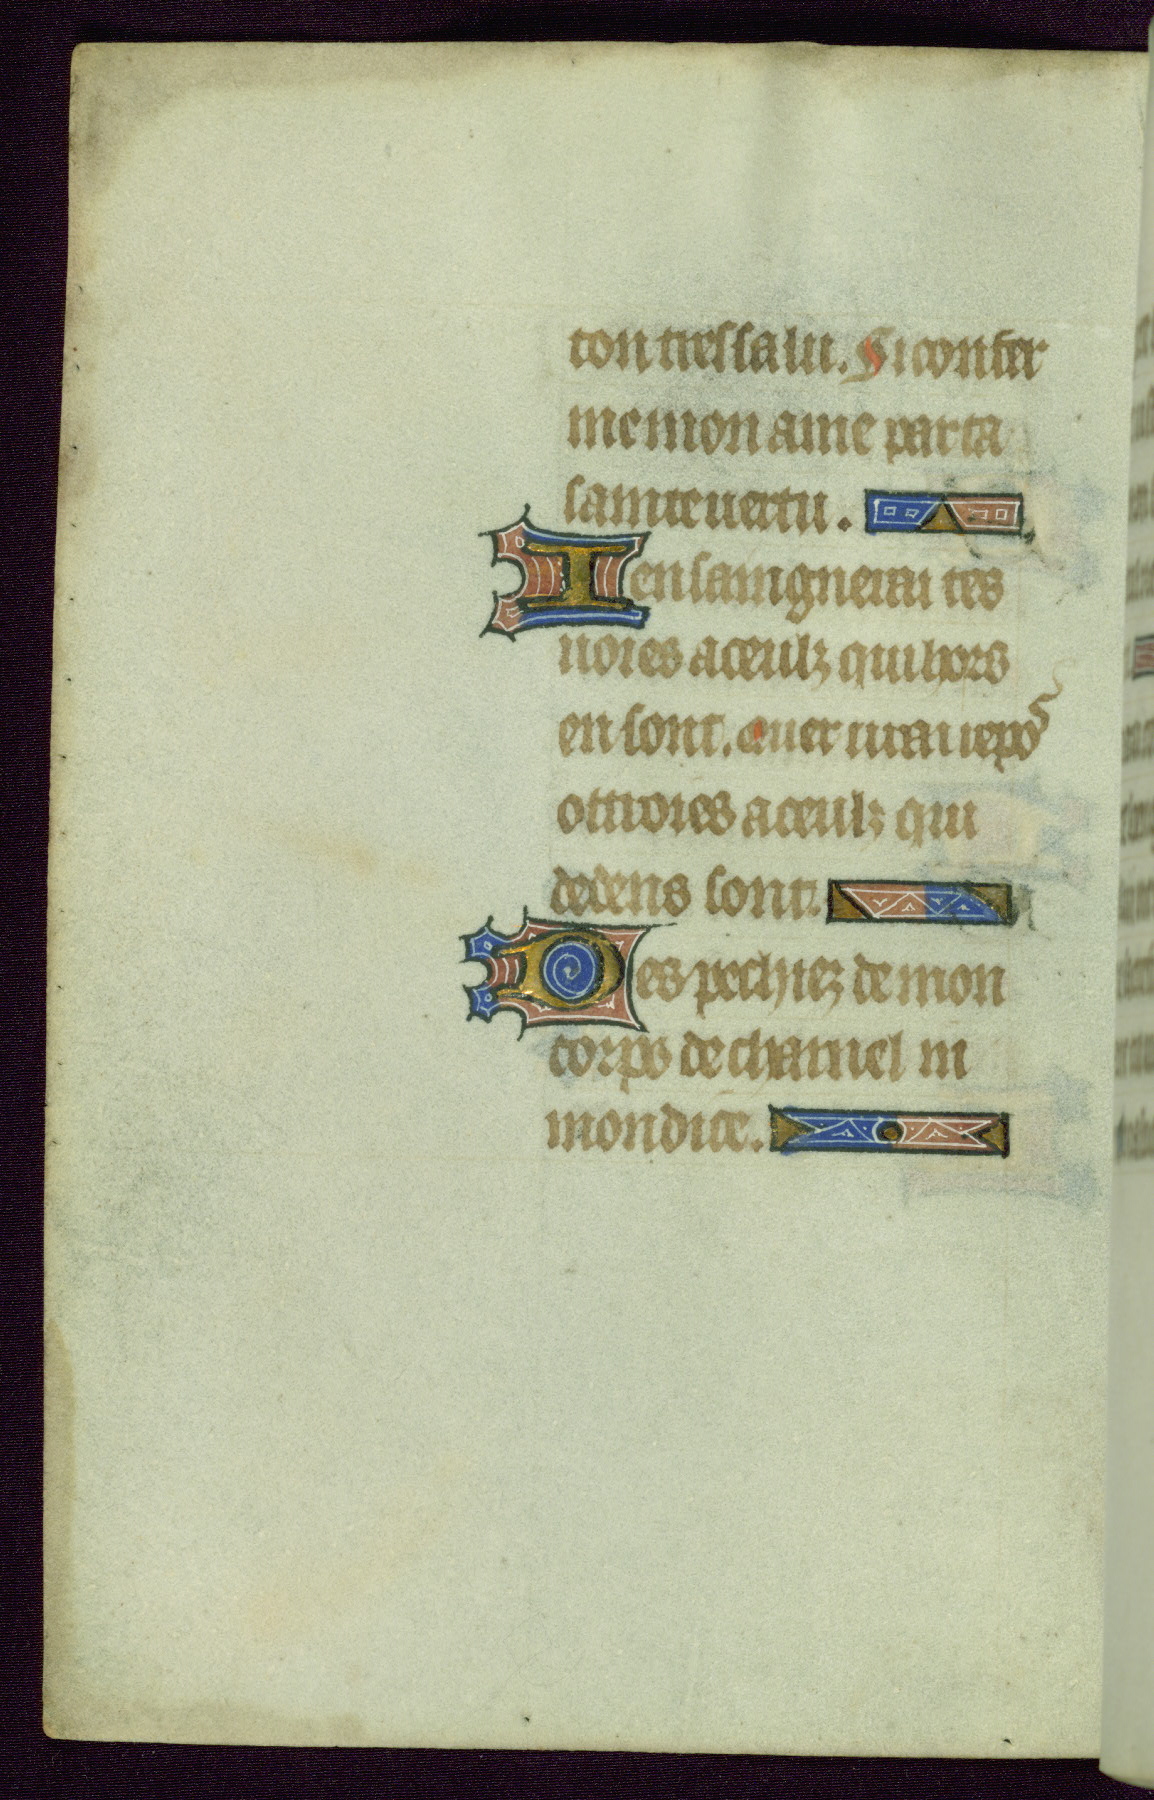 ton tressalu. Si confer
me mon ame par ta
sainte uertu.
Iensaingnerai tes
uoies a ceulz qui hors
en sont. 
ottroies a ceulz qui
dedens sont.
Des pechiez de mon
corps de charnel in
mondice.